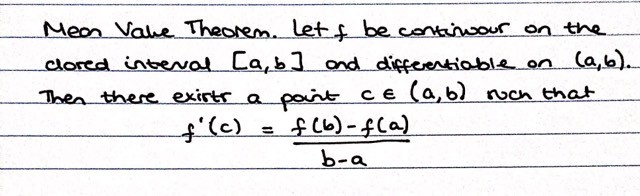 Mean Value Theorem. Let f be continuous on the
closed interval [a,b] and differentiable on (a,b).
Then there exists a point c ∈ (a,b) such that
f'(c) = f(b)-f(a)
b-a